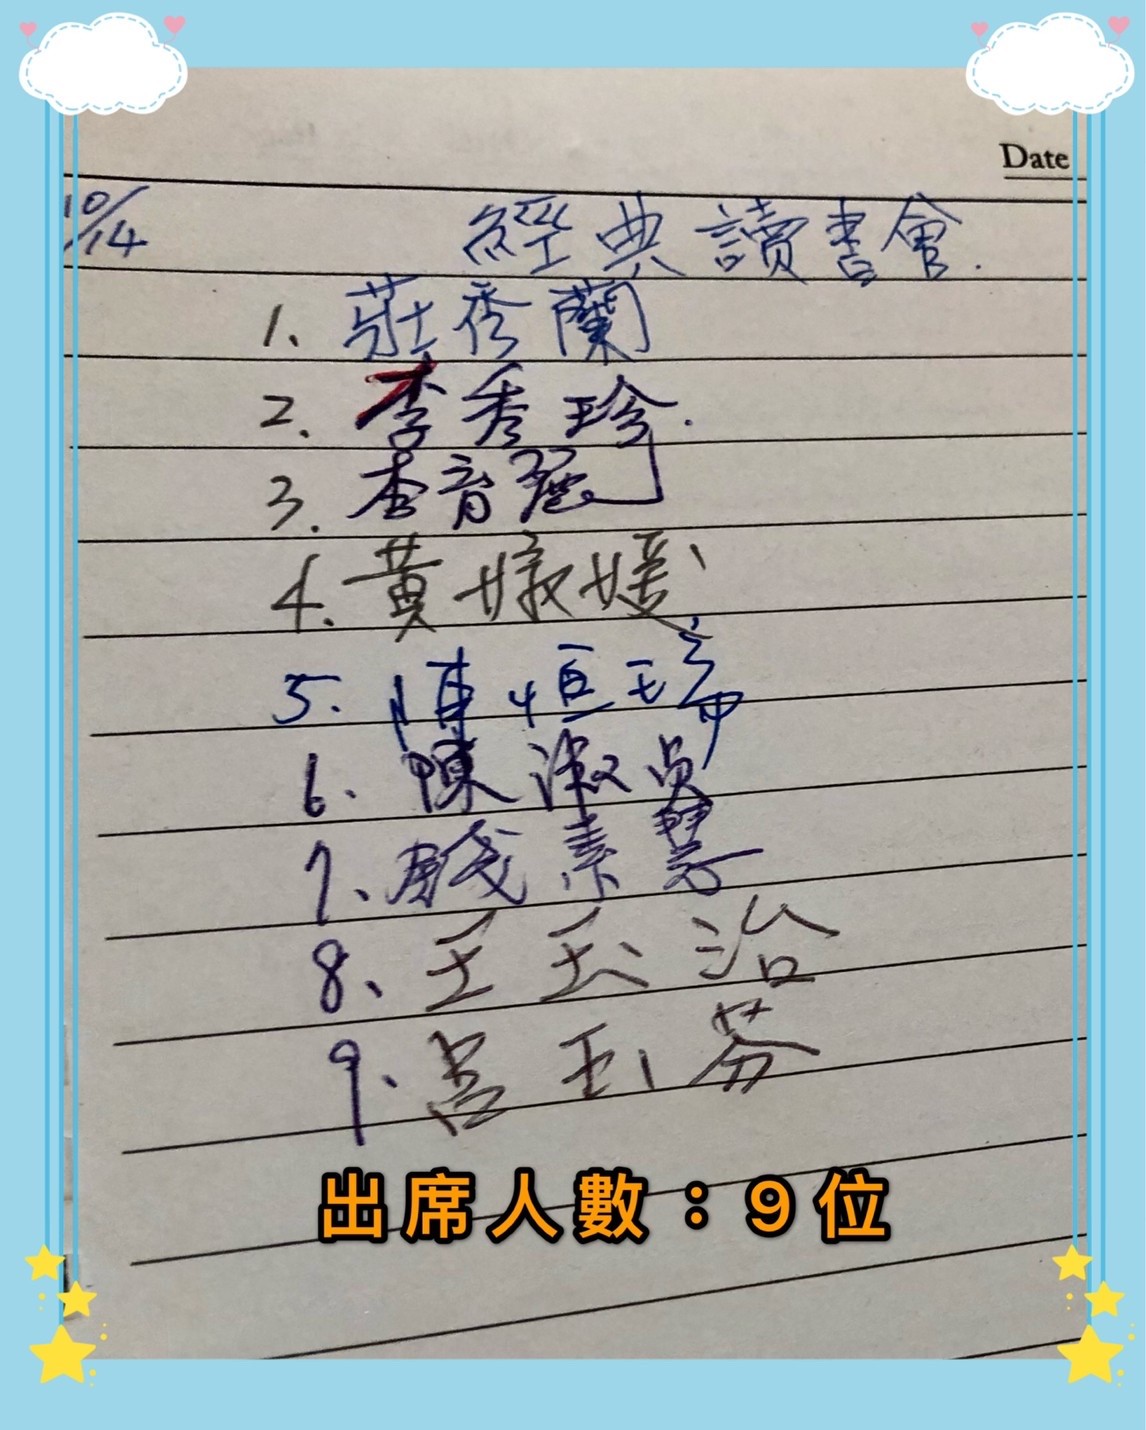 Date
10/14 經典讀書會.
1. 莊秀蘭
2. 李秀珍.
3. 李育麗
4. 黃媺媛
5. 陳恒瑞
6. 陳淑貞
7. 素慧
8、王玉治
9、呂玉芬
出席人數：9位